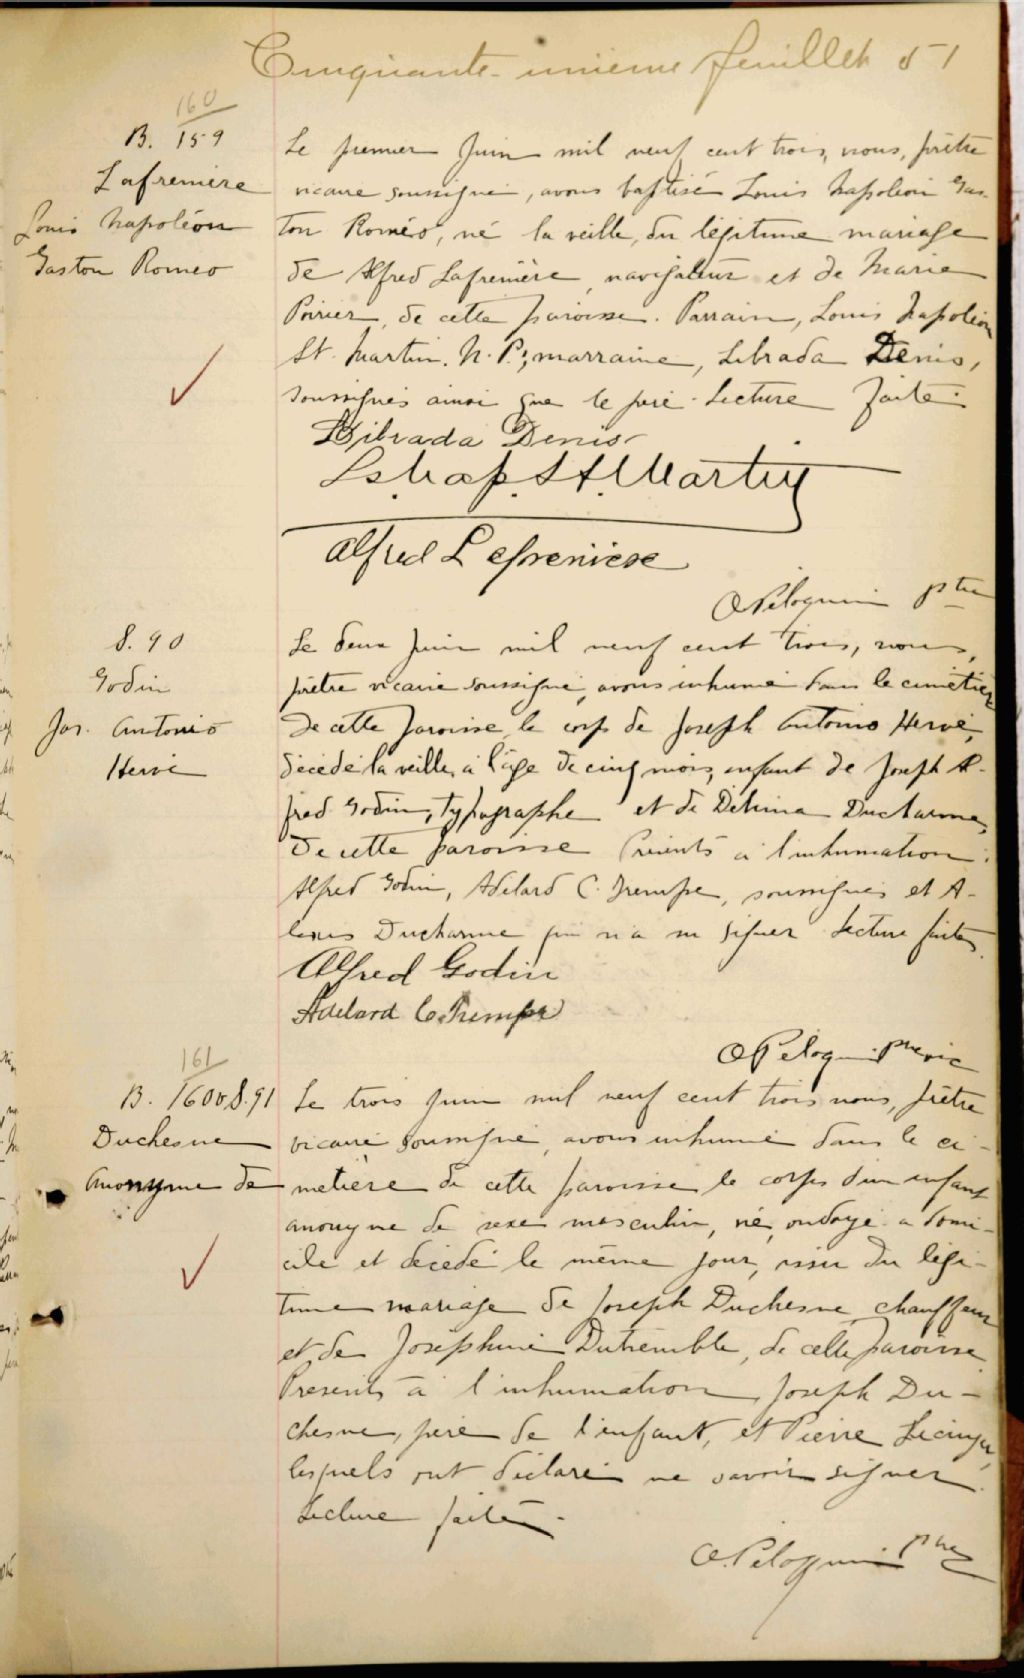 Cinquante-unième feuillet 51
160
B. 159
Lafrenière
Louis Napoléon
Gaston Romeo
Le premier Juin mil neuf cent trois, nous, prêtre
vicaire soussigné, avons baptisé Louis Napoléon Gas-
ton Roméo, né la veille, du légitime mariage
de Alfred Lafrenière, navigateur et de Marie
Poirier, de cette paroisse. Parrain, Louis Napoléon
St. Martin. N. P.; marraine, Librada Denis,
soussignés ainsi que le père. Lecture faite.
Librada Denis
Ls. Nap. St. Martin
Alfred Lefreniere
O Péloquin ptre
S. 90
Godin
Jos. Antonio
Hervé
Le deux Juin mil neuf cent trois, nous,
prêtre vicaire soussigné, avons inhumé dans le cimetière
de cette paroisse le corps de Joseph Antonio Hervé,
décédé la veille, à l'âge de cinq mois, enfant de Joseph Al-
fred Godin, typographe et de Délima Ducharme,
de cette paroisse Présents à l'inhumation:
Alfred Godin, Adélard C. Trempe, soussignés et A-
lexis Ducharme qui n'a su signer Lecture faite.
Alfred Godin
Adelard C. Trempe
O Péloquin ptre vic
161
B. 160 & S. 91
Duchesne
Anonyme de
Le trois Juin mil neuf cent trois nous, prêtre
vicaire soussigné, avons inhumé dans le ci-
metière de cette paroisse le corps d'un enfant
anonyme de sexe masculin, né, ondoyé à domi-
cile et décédé le même jour, issu du légi-
time mariage de Joseph Duchesne chauffeur
et de Joséphine Dutremble, de cette paroisse
Présents à l'inhumation Joseph Du-
chesne, père de l'enfant, et Pierre
lesquels ont déclaré ne savoir signer.
Lecture faite.
O. Péloquin ptre